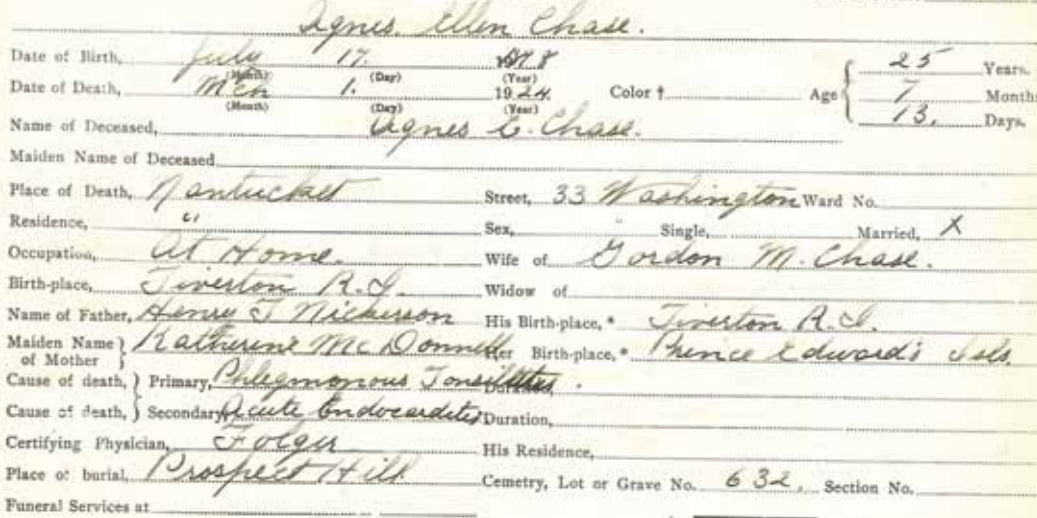 Agnes Ellen Chase.
Date of Birth, July 17. (Month) (Day) (Year)
Date of Death, Mch 1. 1924. (Month) (Day) (Year) Color † Age { 25 Years. 7 Months 13. Days.
Name of Deceased, Agnes E. Chase.
Maiden Name of Deceased
Place of Death, Nantucket Street, 33 Washington Ward No.
Residence, " Sex, " Single, Married, X
Occupation, At Home. Wife of Gordon M. Chase.
Birth-place, Tiverton R.I. Widow of
Name of Father, Henry J Nickerson His Birth-place,* Tiverton R.I.
Maiden Name of Mother } Katherine McDonnell Her Birth-place,* Prince Edward's Isls.
Cause of death, } Primary, Phlegmonous Tonsilitis. Duration,
Cause of death, } Secondary, Acute Endocarditis Duration,
Certifying Physician, Folger His Residence,
Place of burial, Prospect Hill Cemetry, Lot or Grave No. 632. Section No.
Funeral Services at